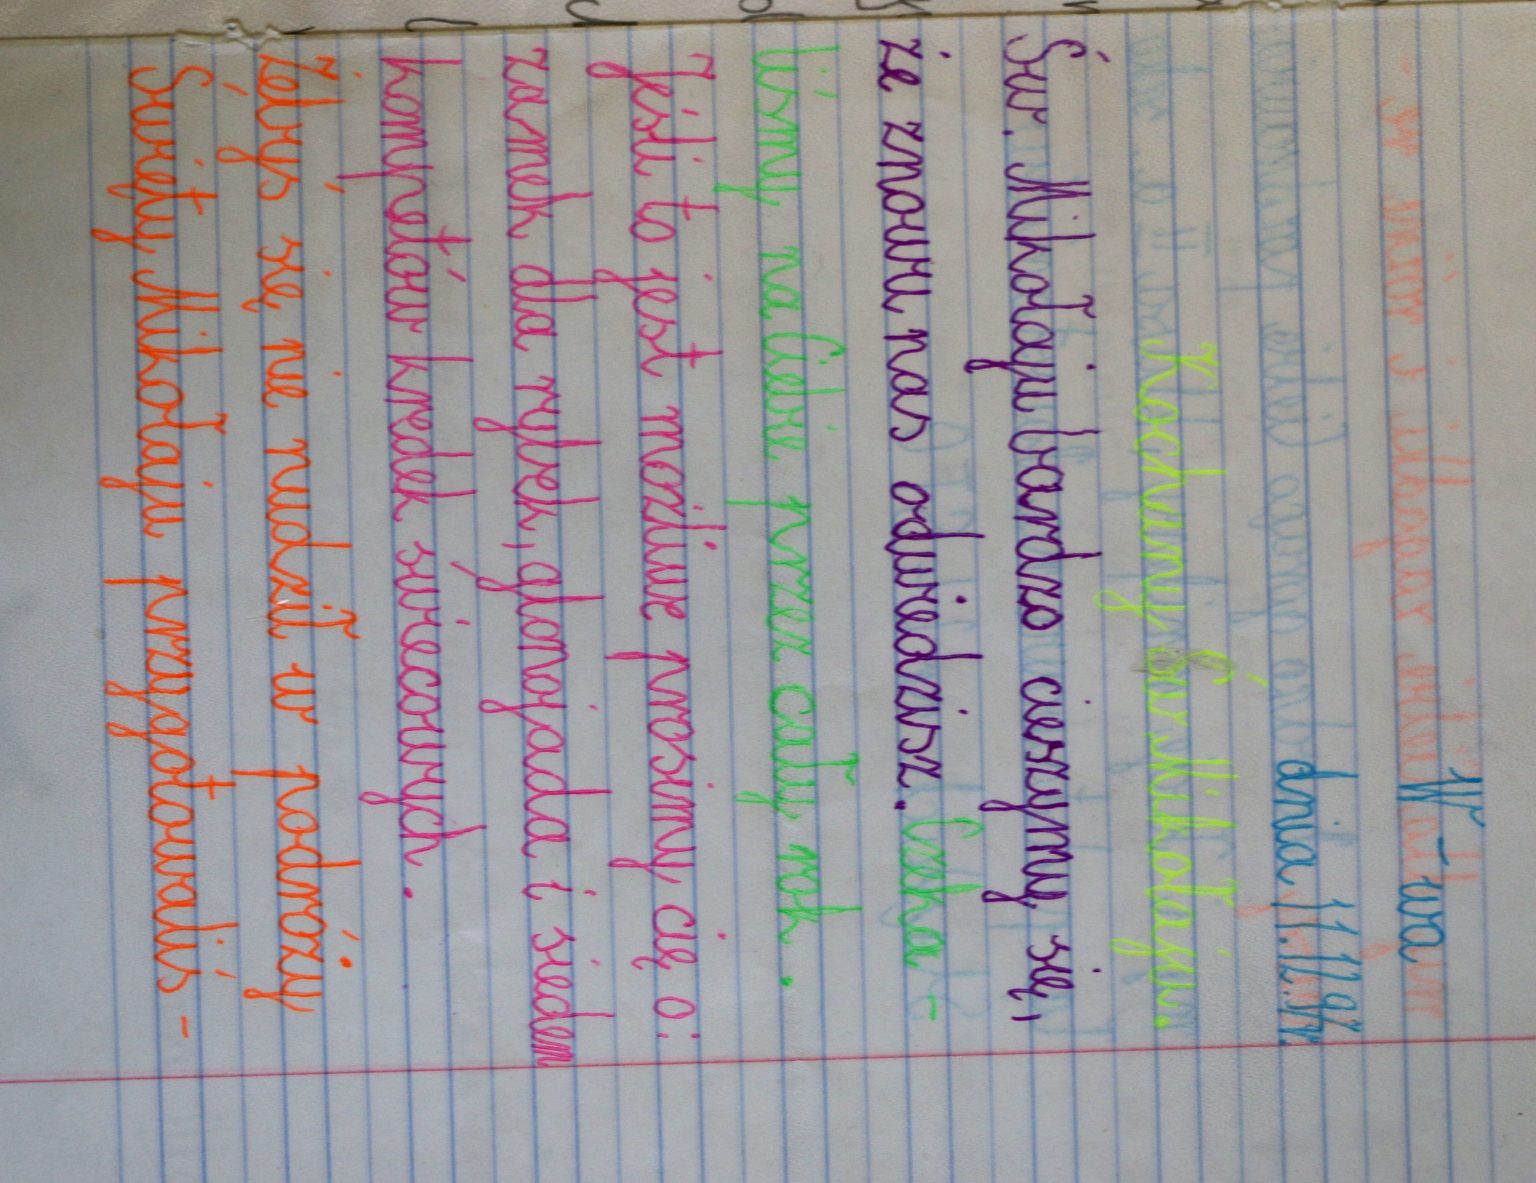 W-wa
dnia 11.12.98r.
Kochany Św Mikołaju.
Św. Mikołaju bardzo cieszymy się,
że znowu nas odwiedzisz. Czeka-
liśmy na Ciebie przez cały rok.
Jeśli to jest możliwe prosimy cię o:
zamek dla rybek, glonojada i siedem
kompletów kredek świecowych.
Żebyś się nie nudził w podróży
Święty Mikołaju przygotowaliś-